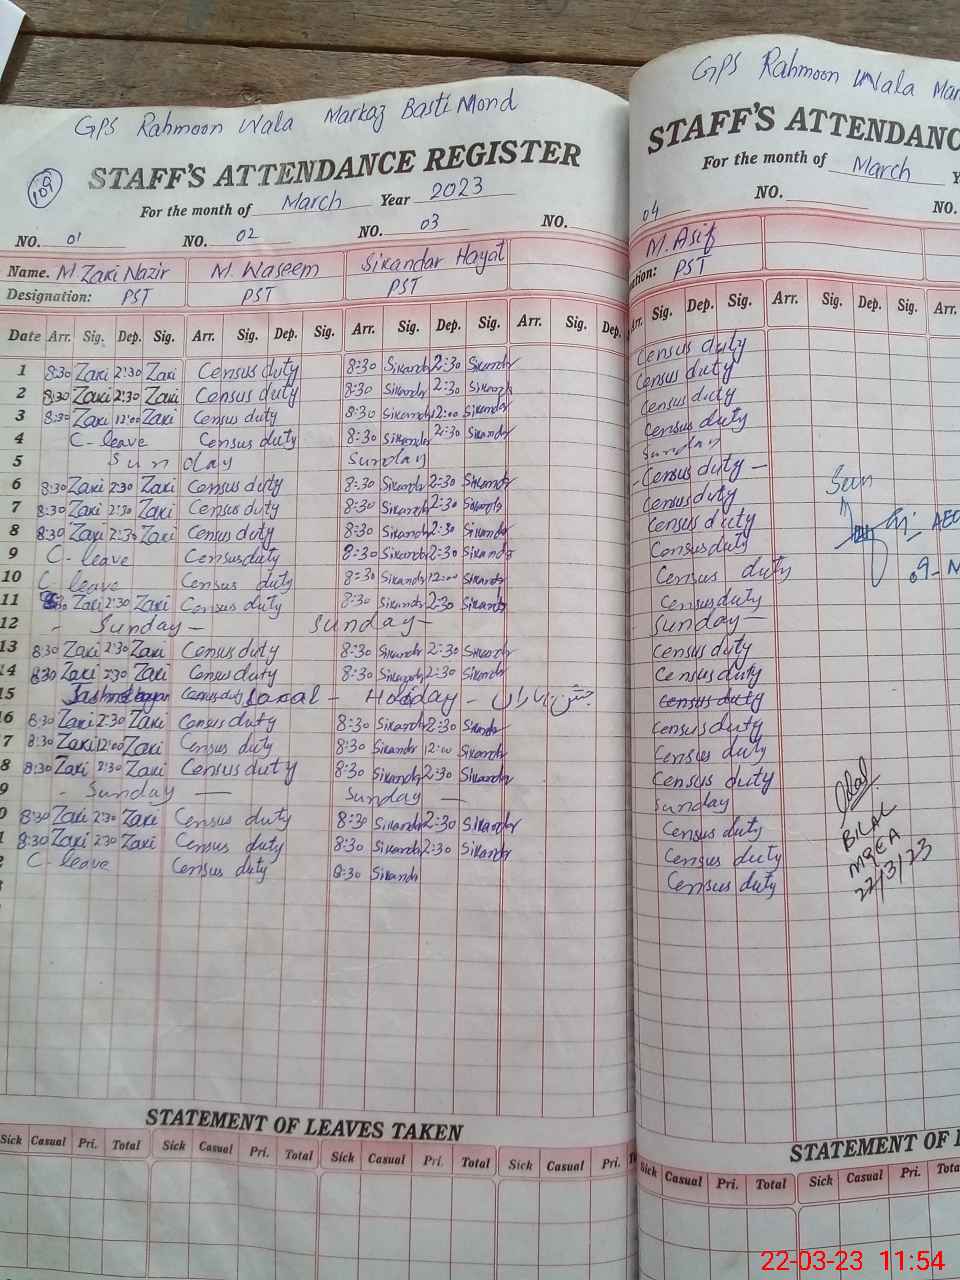 GPS Rahmoon Wala Markaz Basti Mond
109
STAFF'S ATTENDANCE REGISTER
For the month of March Year 2023
NO. 01 NO. 02 NO. 03 NO.
Name. M Zaki Nazir M. Waseem Sikandar Hayat
Designation: PST PST PST
Date Arr. Sig. Dep. Sig. Arr. Sig. Dep. Sig. Arr. Sig. Dep. Sig. Arr. Sig. Dep.
1 8:30 Zaki 2:30 Zaki Census duty 8:30 Sikandr 2:30 Sikandr
2 8:30 Zaki 2:30 Zaki Census duty 8:30 Sikandr 2:30 Sikandr
3 8:30 Zaki 12:00 Zaki Census duty 8:30 Sikandr 12:00 Sikandr
4 C- leave Census duty 8:30 Sikandr 2:30 Sikandr
5 Sunday Sunday
6 8:30 Zaki 2:30 Zaki Census duty 8:30 Sikandr 2:30 Sikandr
7 8:30 Zaki 2:30 Zaki Census duty 8:30 Sikandr 2:30 Sikandr
8 8:30 Zaki 2:30 Zaki Census duty 8:30 Sikandr 2:30 Sikandr
9 C- leave Census duty 8:30 Sikandr 2:30 Sikandr
10 C leave Census duty 8:30 Sikandr 12:00 Sikandr
11 Zaki 2:30 Zaki Census duty 8:30 Sikandr 2:30 Sikandr
12 - Sunday - Sunday -
13 8:30 Zaki 2:30 Zaki Census duty 8:30 Sikandr 2:30 Sikandr
14 8:30 Zaki 2:30 Zaki Census duty 8:30 Sikandr 2:30 Sikandr
15 Census duty Local - Holiday - جشن بہاراں
16 8:30 Zaki 2:30 Zaki Census duty 8:30 Sikandr 2:30 Sikandr
7 8:30 Zaki 12:00 Zaki Census duty 8:30 Sikandr 12:00 Sikandr
8 8:30 Zaki 2:30 Zaki Census duty 8:30 Sikandr 2:30 Sikandr
9 - Sunday — Sunday —
0 8:30 Zaki 2:30 Zaki Census duty 8:30 Sikandr 2:30 Sikandr
1 8:30 Zaki 2:30 Zaki Census duty 8:30 Sikandr 2:30 Sikandr
2 C- leave Census duty 8:30 Sikandr
STATEMENT OF LEAVES TAKEN
Sick Casual Pri. Total Sick Casual Pri. Total Sick Casual Pri. Total Sick Casual Pri.
GPS Rahmoon Wala Mar
STAFF'S ATTENDANC
For the month of March Y
04 NO. NO.
M. Asif
nation: PST
Arr. Sig. Dep. Sig. Arr. Sig. Dep. Sig. Arr.
Census duty
Census duty
Census duty
Census duty
Sunday
Census duty -
Census duty
Census duty
Census duty
Census duty
Census duty
Sunday -
Census duty
Census duty
Census duty
Census duty
Census duty
Census duty
Sunday
Census duty
Census duty
Census duty
Seen
AEO
09-M
BILAL
MEA
22/3/23
STATEMENT OF L
Sick Casual Pri. Total Sick Casual Pri. Total
22-03-23 11:54